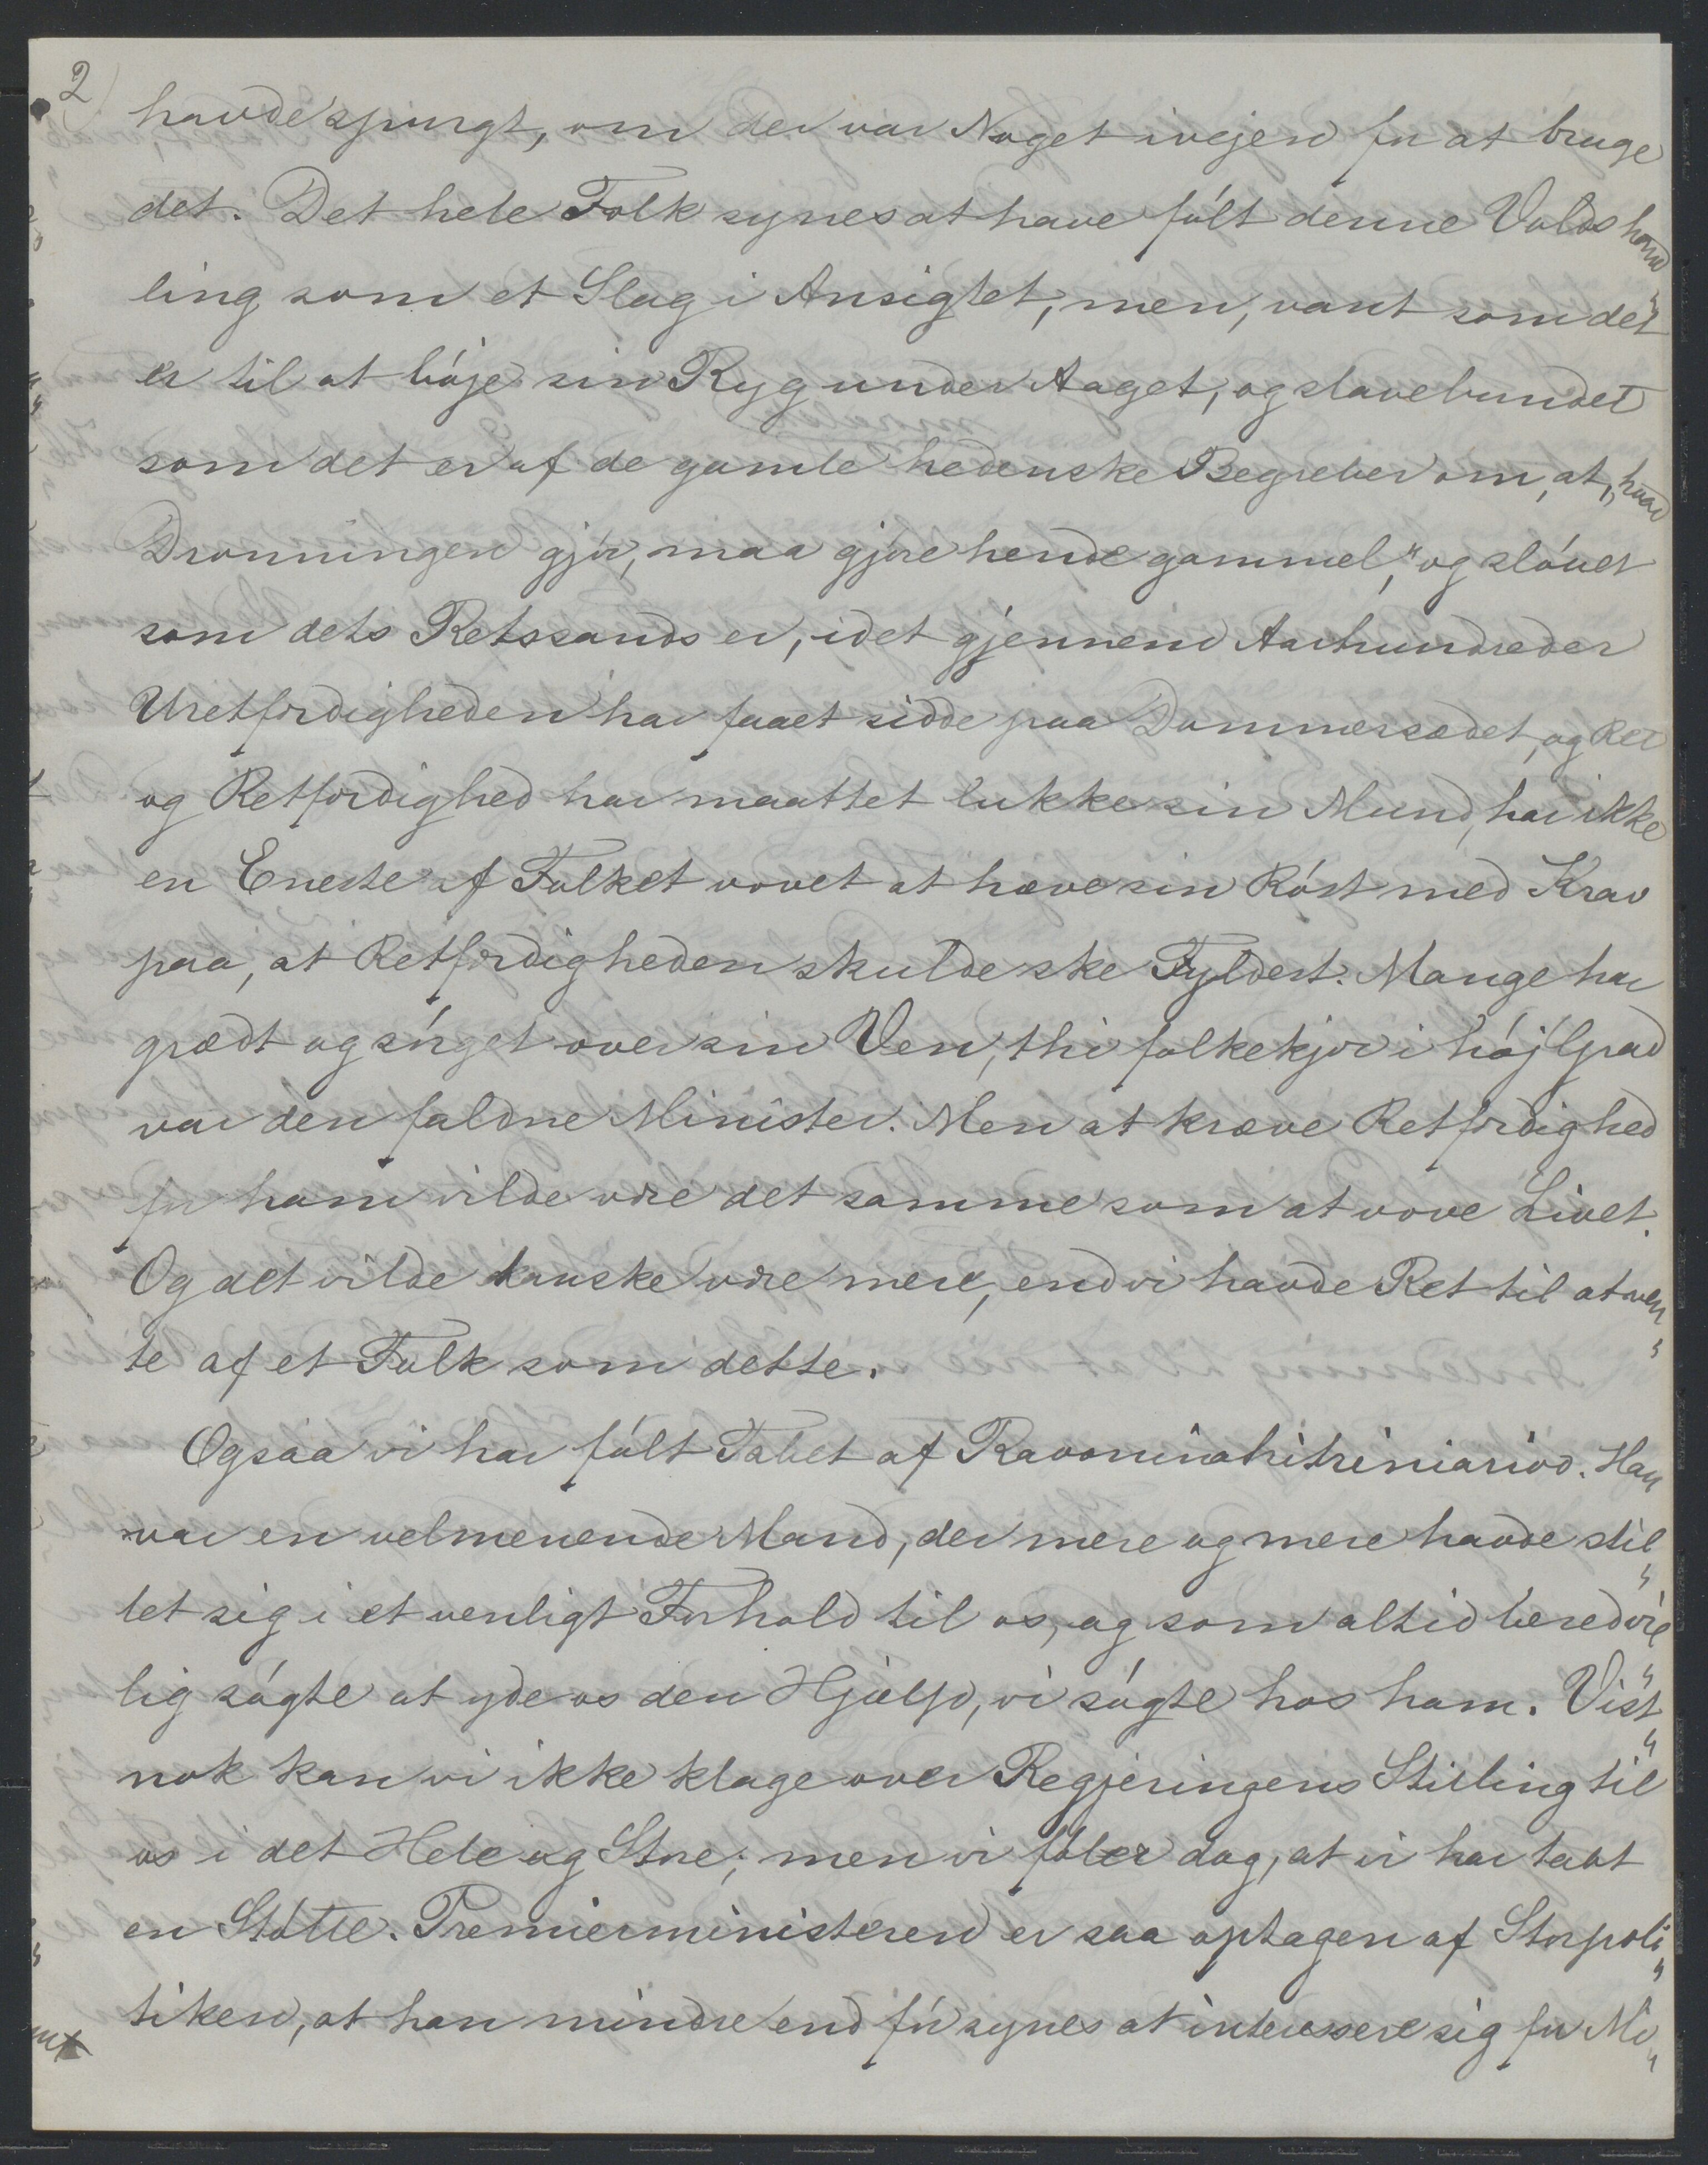 2)
havde spurgt, om der var Noget ivejen for at bruge
det. Det hele Folk synes at have fólt denne Voldshand„
ling som et Slag i Ansigtet, men, vant som det
er til at bóje sin Ryg under Aaget, og slavebundet
som det er af de gamle hedenske Begreber om, at, „hvad
Dronningen gjór, maa gjóre hende gammel," og slóvet
som dets Retssands er, idet gjennem Aarhundreder
Uretfærdigheden har faaet sidde paa Dommersædet, og Ret
og Retfærdighed har maattet lukke sin Mund, har ikke
en Eneste af Folket vovet at hæve sin Róst med Krav
paa, at Retfærdigheden skulde ske Fyldest. Mange har
grædt og sórget over sin Ven, thi folkekjær i hój Grad
var den faldne Minister. Men at kræve Retfærdighed
for ham vilde være det samme som at vove Livet.
Og det vilde kanske være mere, end vi havde Ret til at ven„
te af et Folk som dette.
Ogsaa vi har fólt Tabet af Ravoninahitriniarivo. Han
var en velmenende Mand, der mere og mere havde stil„
let sig i et venligt Forhold til os, og som altid beredvil„
lig sógte at yde os den Hjælp, vi sógte hos ham. Vist„
nok kan vi ikke klage over Regjeringens Stilling til
os i det Hele og Store; men vi fóler dog, at vi har tabt
en Stótte. Premierministeren er saa optagen af Storpoli„
tiken, at han mindre end fór synes at interessere sig for Mi„